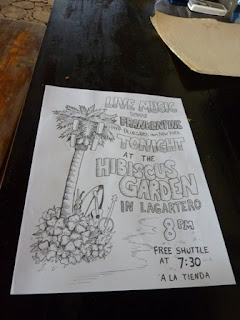 LIVE MUSIC
TONIGHT
AT THE
HIBISCUS
GARDEN
IN LAGARTERO
8 PM
FREE SHUTTLE
AT 7:30
A LA TIENDA